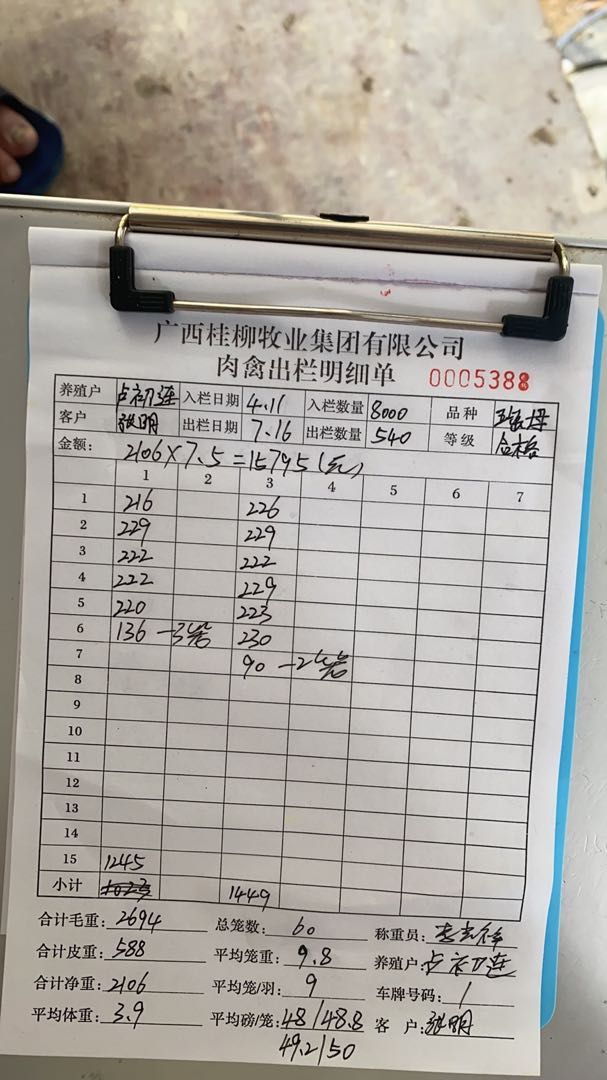 广西桂柳牧业集团有限公司
肉禽出栏明细单 0005388
养殖户 卢初连 入栏日期 4.11 入栏数量 8000 品种
客户 张明 出栏日期 7.16 出栏数量 540 等级 合格
金额: 2106×7.5=15795(元)
1 2 3 4 5 6 7
1 216 226
2 229 229
3 222 222
4 222 229
5 220 223
6 136 -3笼 230
7 90 -2笼
8
9
10
11
12
13
14
15 1245
小计 1449
合计毛重: 2694 总笼数: 60 称重员:
合计皮重: 588 平均笼重: 9.8 养殖户: 卢初连
合计净重: 2106 平均笼/羽: 9 车牌号码: /
平均体重: 3.9 平均磅/笼: 48/48.8 客 户: 张明
49.2/50